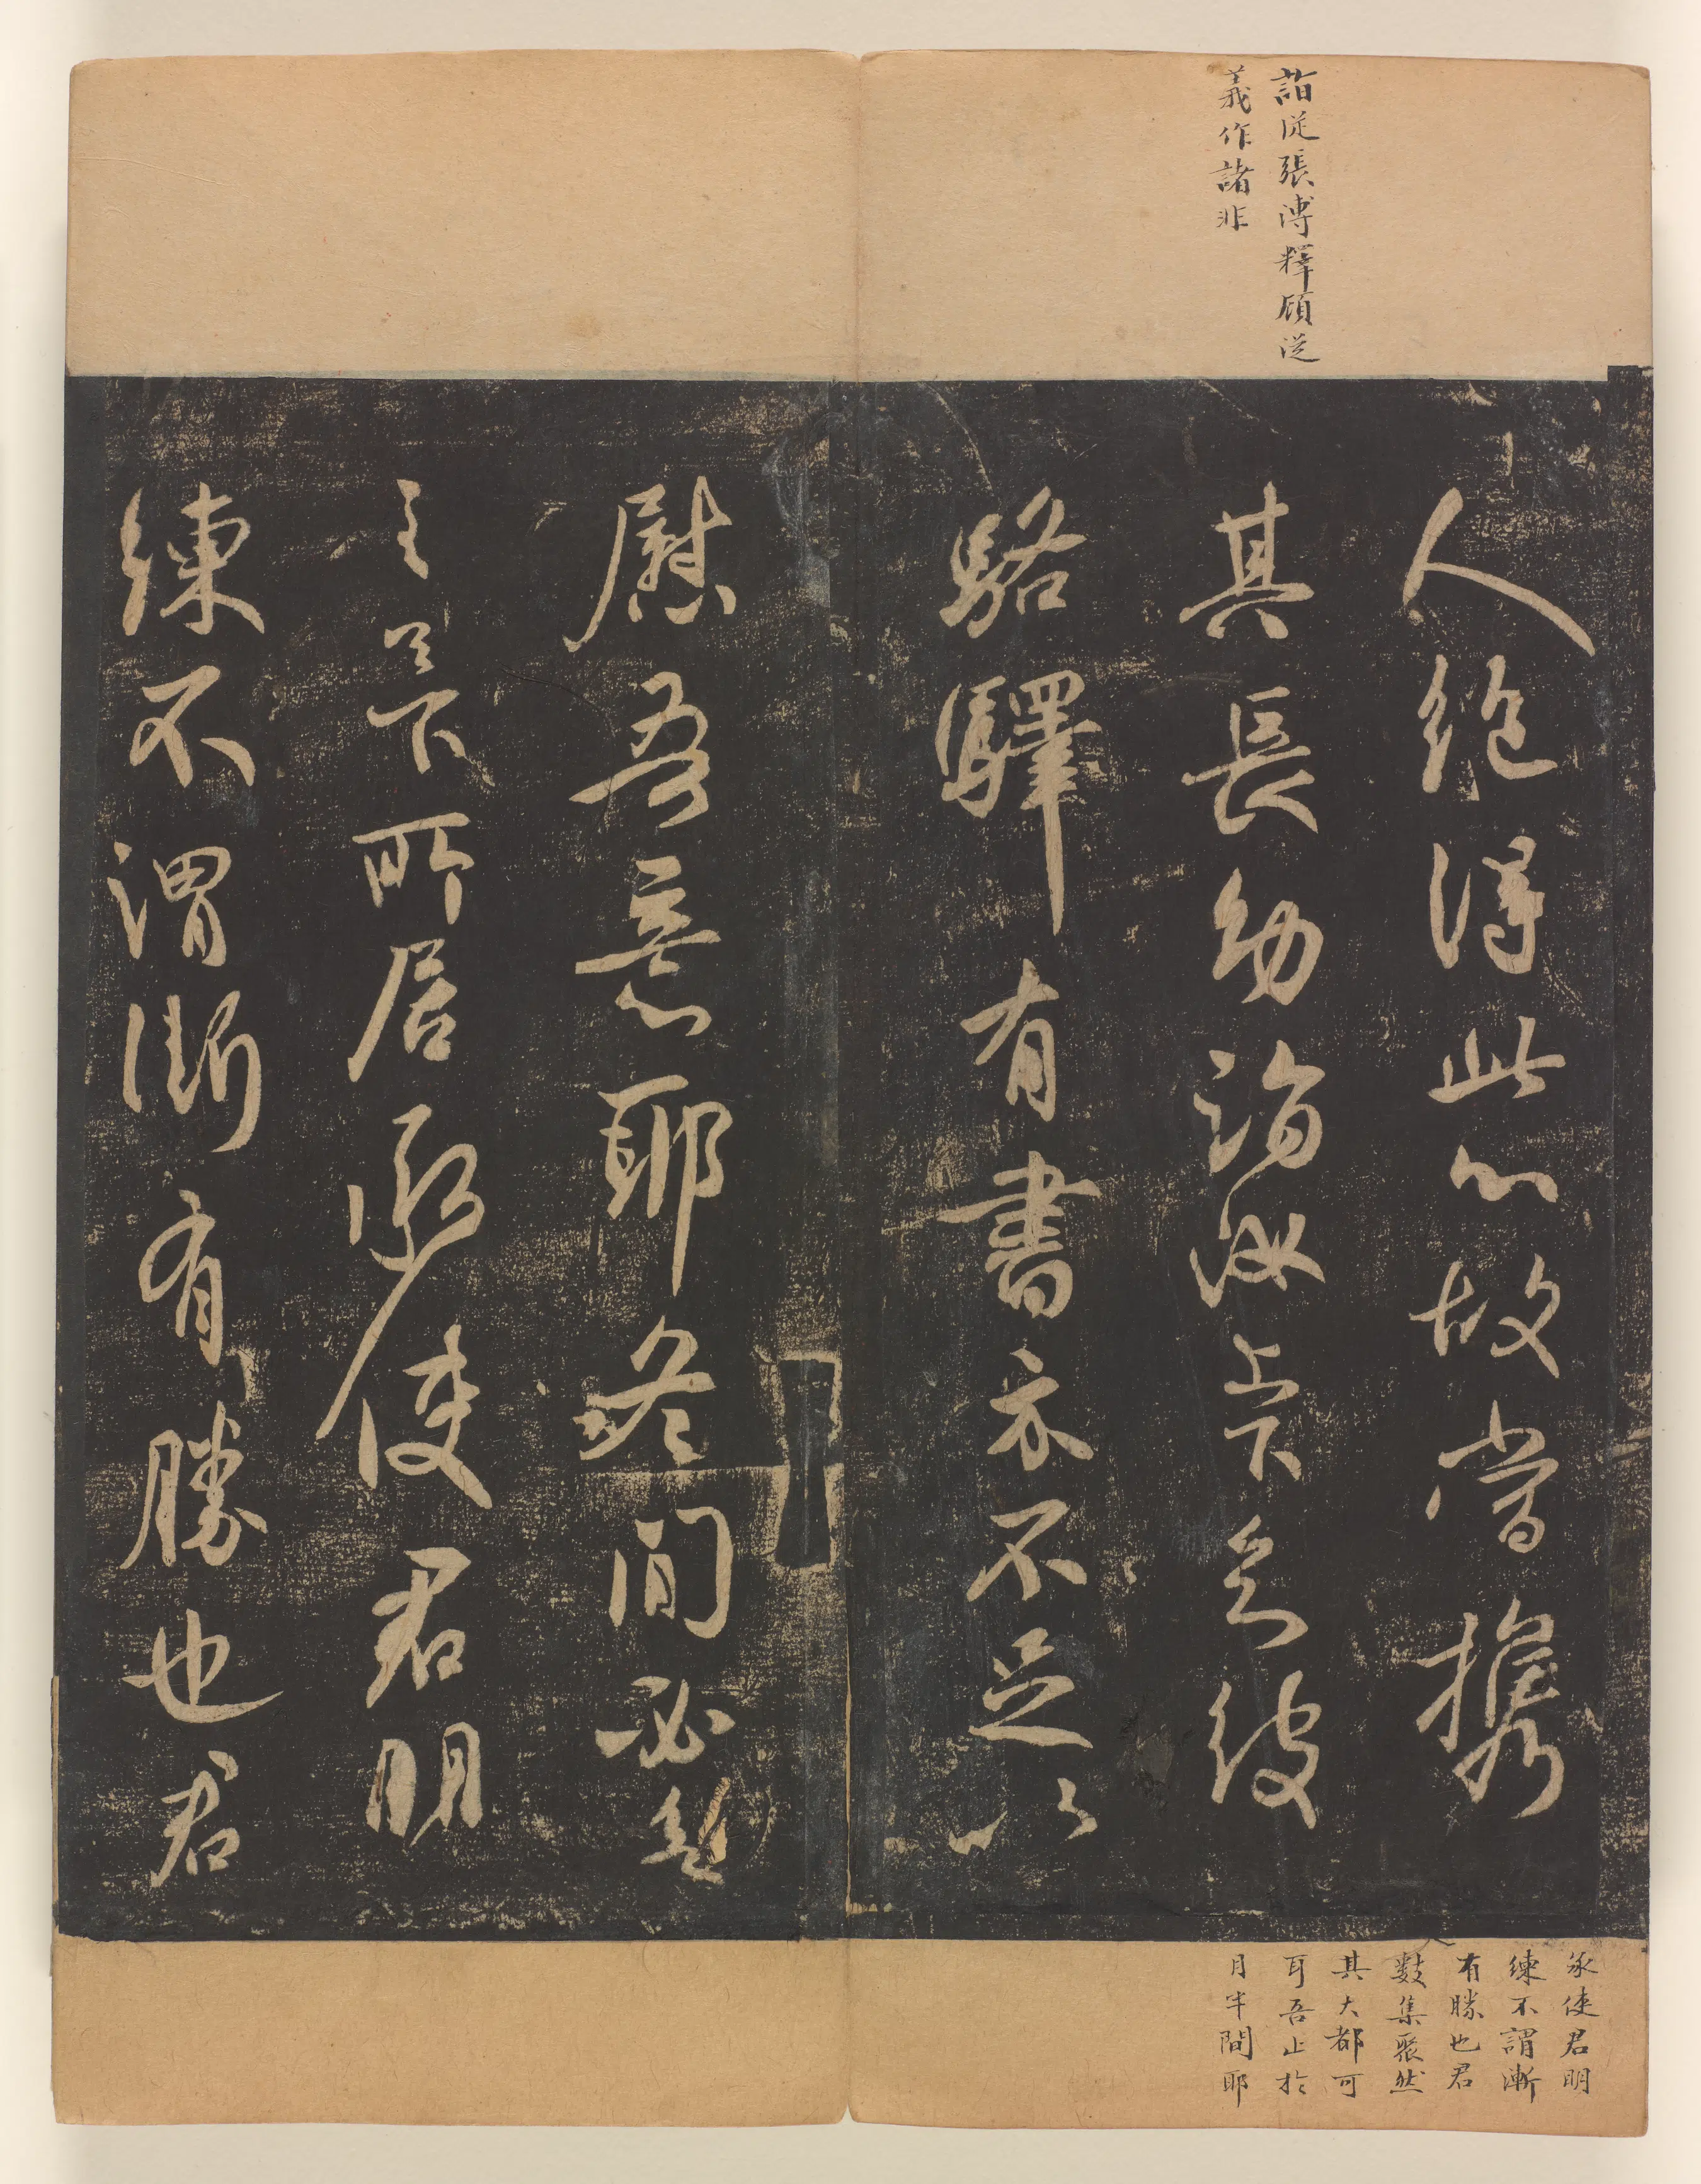 詣從張溥釋顧從
義作諸非
人絶得此心故當攜
其長幼詣汝上下云彼
駱驛有書亦不足以
慰吾意耶冬間必
下所居承使君明
練不謂漸有勝也君
承使君明
練不謂漸
有勝也君
數集聚然
其大都可
耳吾止於
月半間耶